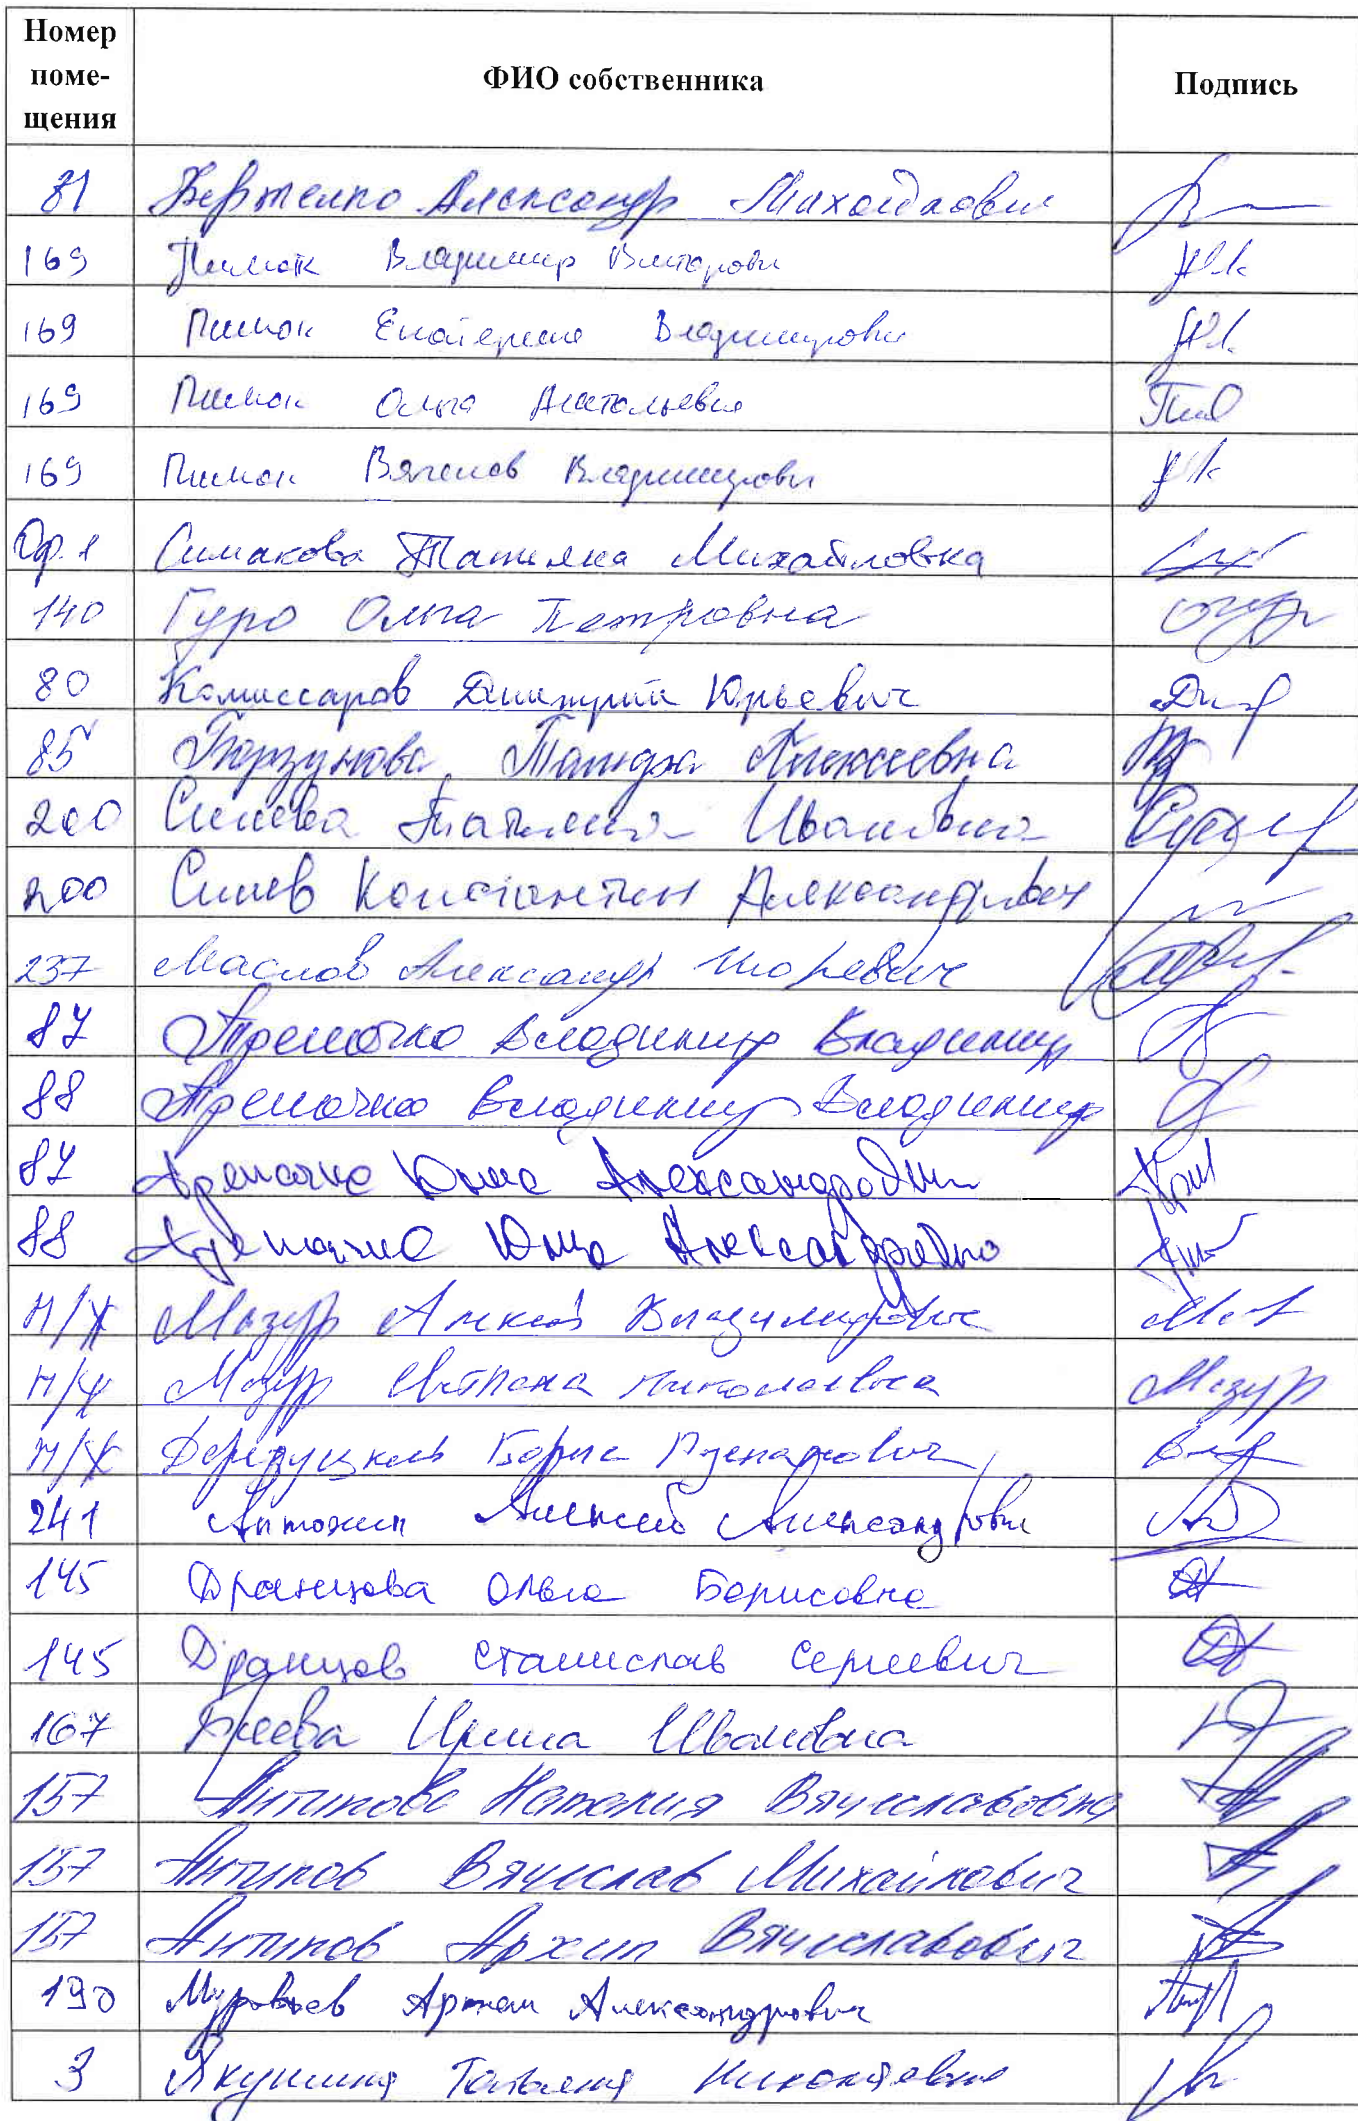 Номер
поме-
щения
ФИО собственника
Подпись
81 Александр
169 Пимок Владимир Викторови
169 Пимок Екатерина Владимировн
169 Пимок Ольга Анатольевна
169 Пимок Вячеслав Владимирови
Оф.1 Симакова Татьяна Михайловна
140 Гуро Ольга Петровна
80 Комиссаров Дмитрий Юрьевич
85 Борзунова Алексеевна
200 Синева Татьяна Ивановна
200 Синев Константин Александрович
237 Маслов Александр Игоревич
87 Владимир Владимир
88 Владимир Владимир
87 Юлия Александровн
88 Юлия Александровна
Н/Ж Мазур Алексей Владимирович
Н/Ж Мазур Светлана Николаевна Мазур
Н/Ж Борис
241 Антохин Алексей Александрови
145 Дранцова Ольга Борисовна
145 Дранцов Станислав Сергеевич
167 Ирина Ивановна
157 Антипова Наталия Вячеславовна
157 Антипов Вячеслав Михайлович
157 Антипов Архип Вячеславович
190 Муравьев Артем Александрович
3 Якушина Татьяна